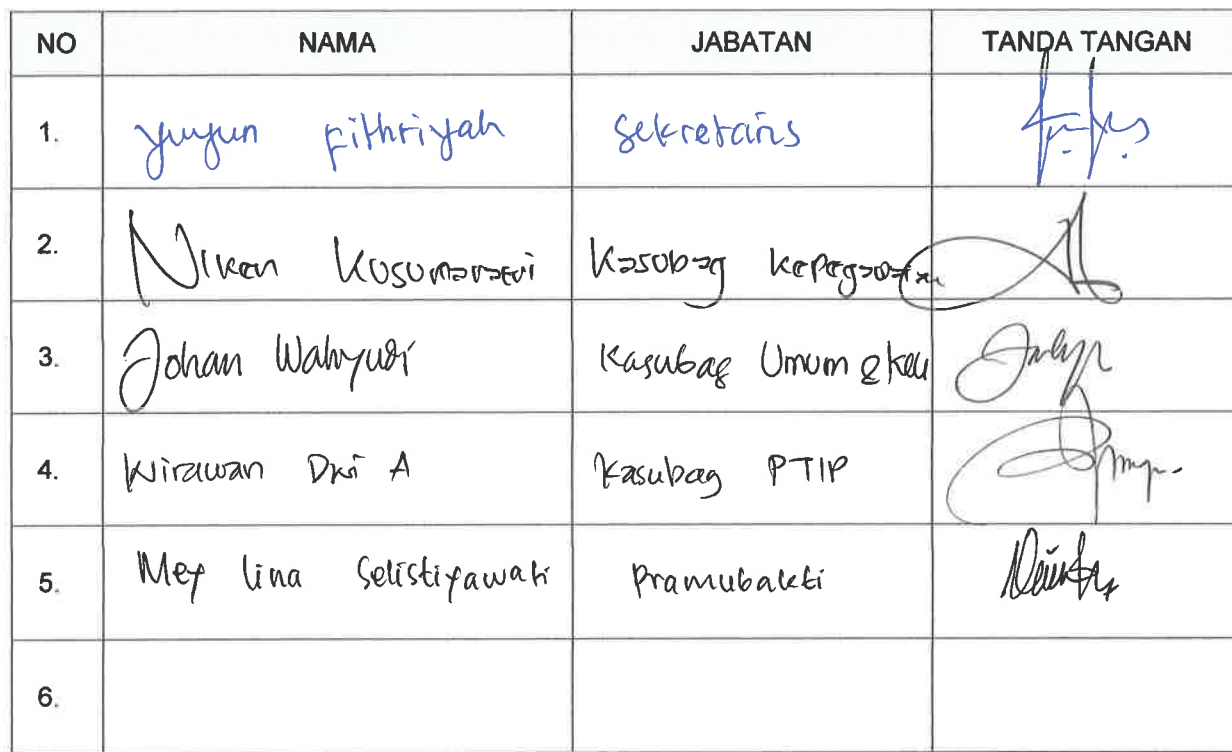 NO NAMA JABATAN TANDA TANGAN
1. Yuyun Fithriyah Sekretaris
2. Niken Kusumawati Kasubag Kepegawaian
3. Johan Wahyudi Kasubag Umum & Keu
4. Wirawan Dwi A Kasubag PTIP
5. Mey Lina Selistiyawati Pramubakti
6.